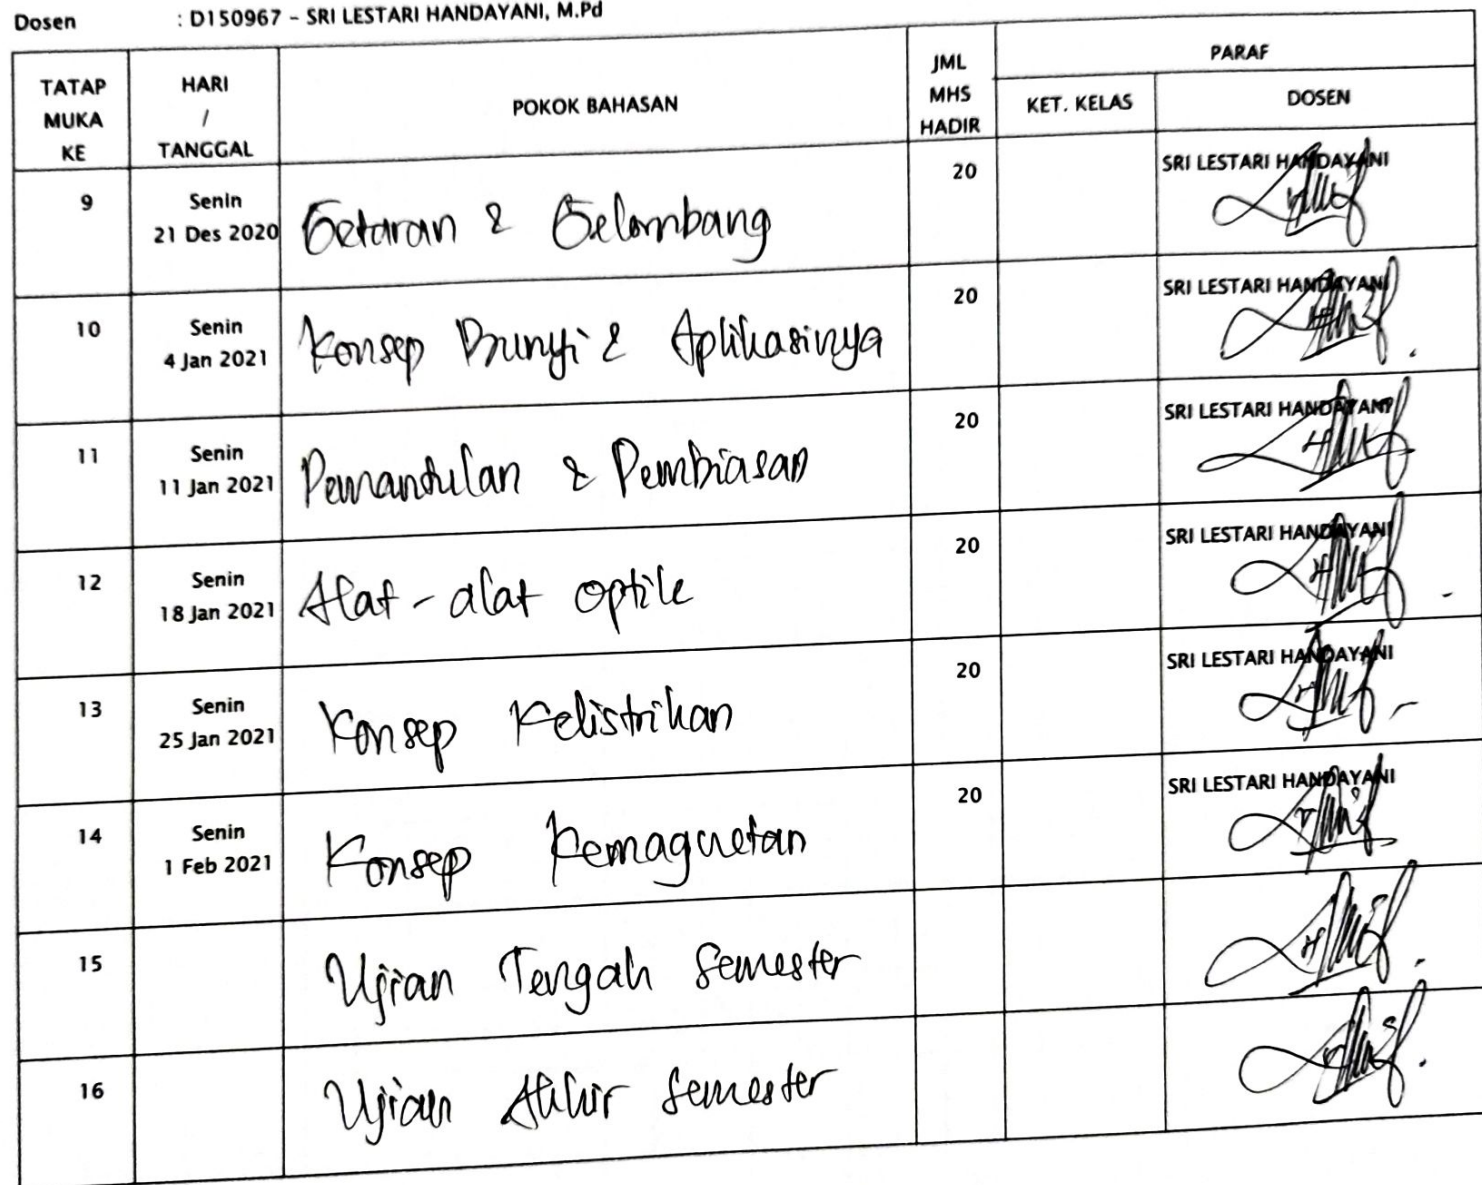 Dosen : D150967 - SRI LESTARI HANDAYANI, M.Pd
TATAP MUKA KE HARI / TANGGAL POKOK BAHASAN JML MHS HADIR PARAF
KET. KELAS DOSEN
9 Senin 21 Des 2020 Getaran & Gelombang 20 SRI LESTARI HANDAYANI
10 Senin 4 Jan 2021 Konsep Bunyi & Aplikasinya 20 SRI LESTARI HANDAYANI
11 Senin 11 Jan 2021 Pemantulan & Pembiasan 20 SRI LESTARI HANDAYANI
12 Senin 18 Jan 2021 Alat-alat optik 20 SRI LESTARI HANDAYANI
13 Senin 25 Jan 2021 Konsep Kelistrikan 20 SRI LESTARI HANDAYANI
14 Senin 1 Feb 2021 Konsep Kemagnetan 20 SRI LESTARI HANDAYANI
15 Ujian Tengah Semester
16 Ujian Akhir Semester